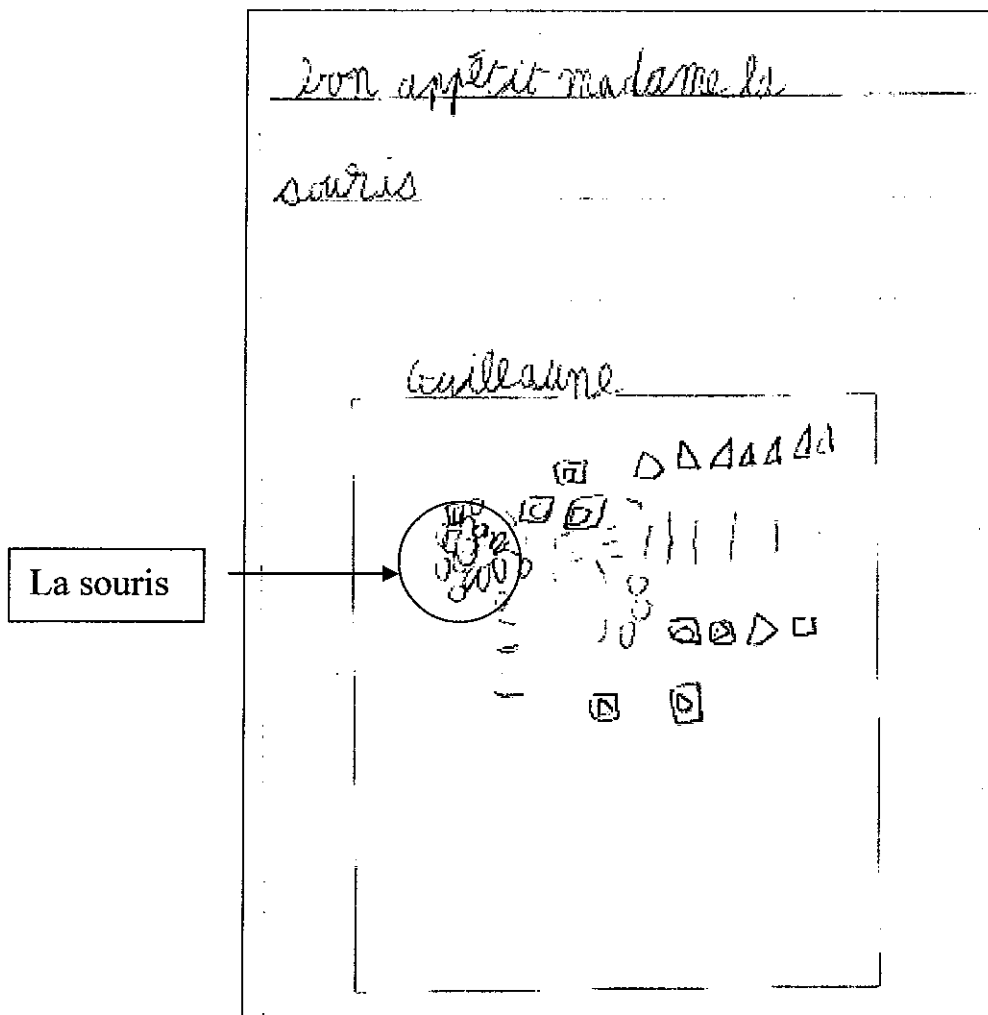 bon appétit madame la
souris
Guillaume
La souris